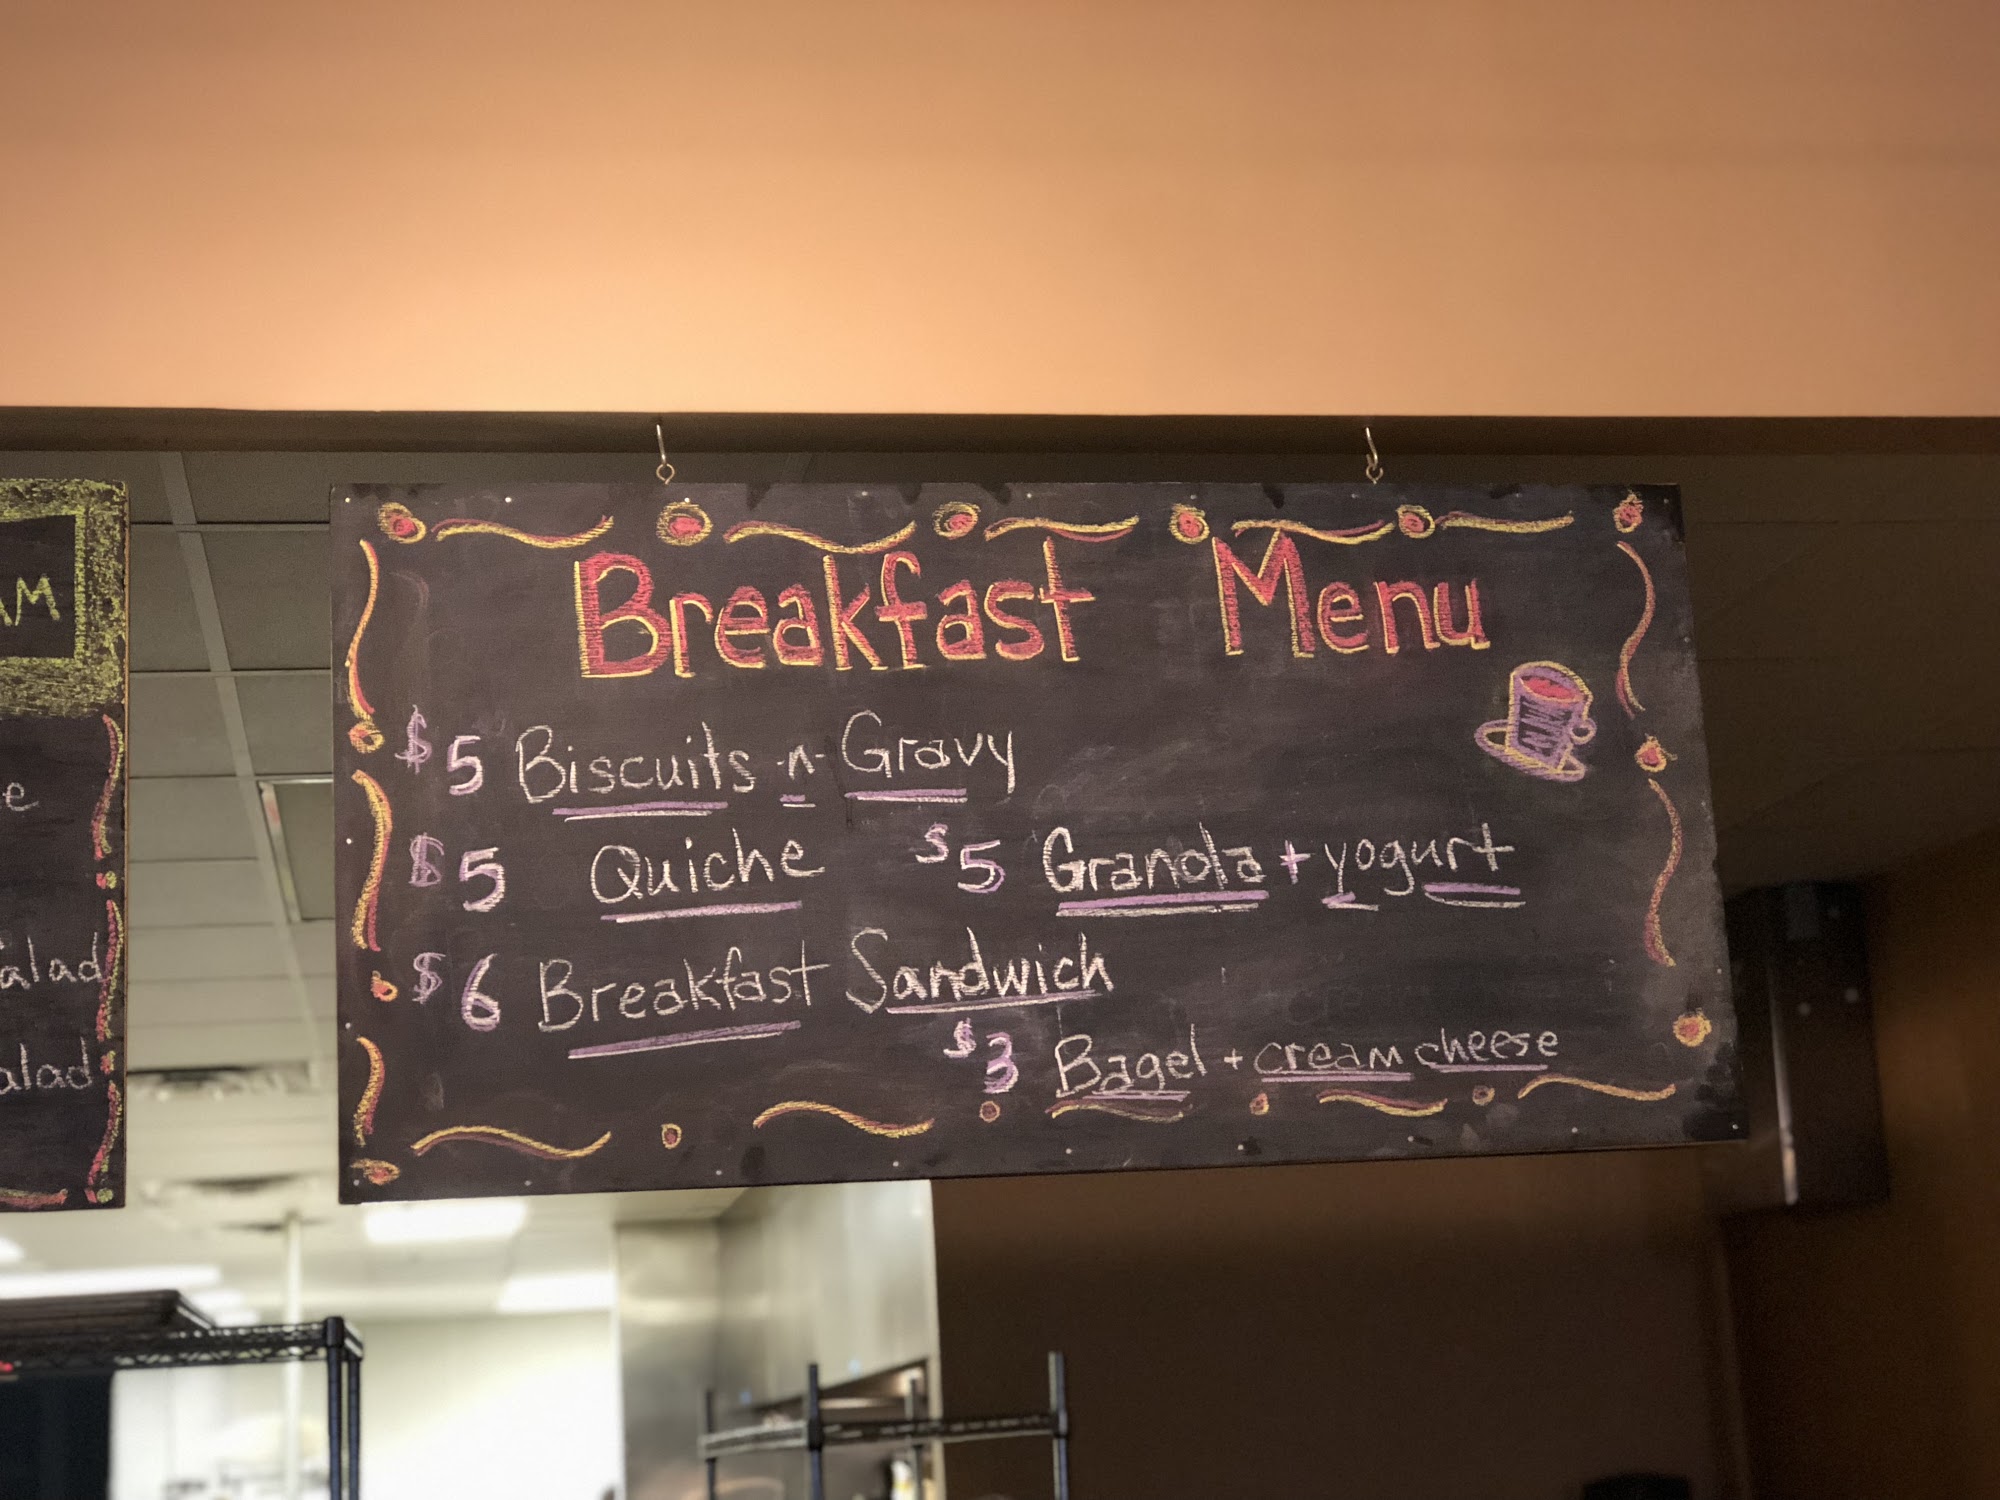 Breakfast Menu
$5 Biscuits -n- Gravy
$5 Quiche
$5 Granola + yogurt
$6 Breakfast Sandwich
$3 Bagel + cream cheese
alad
alad